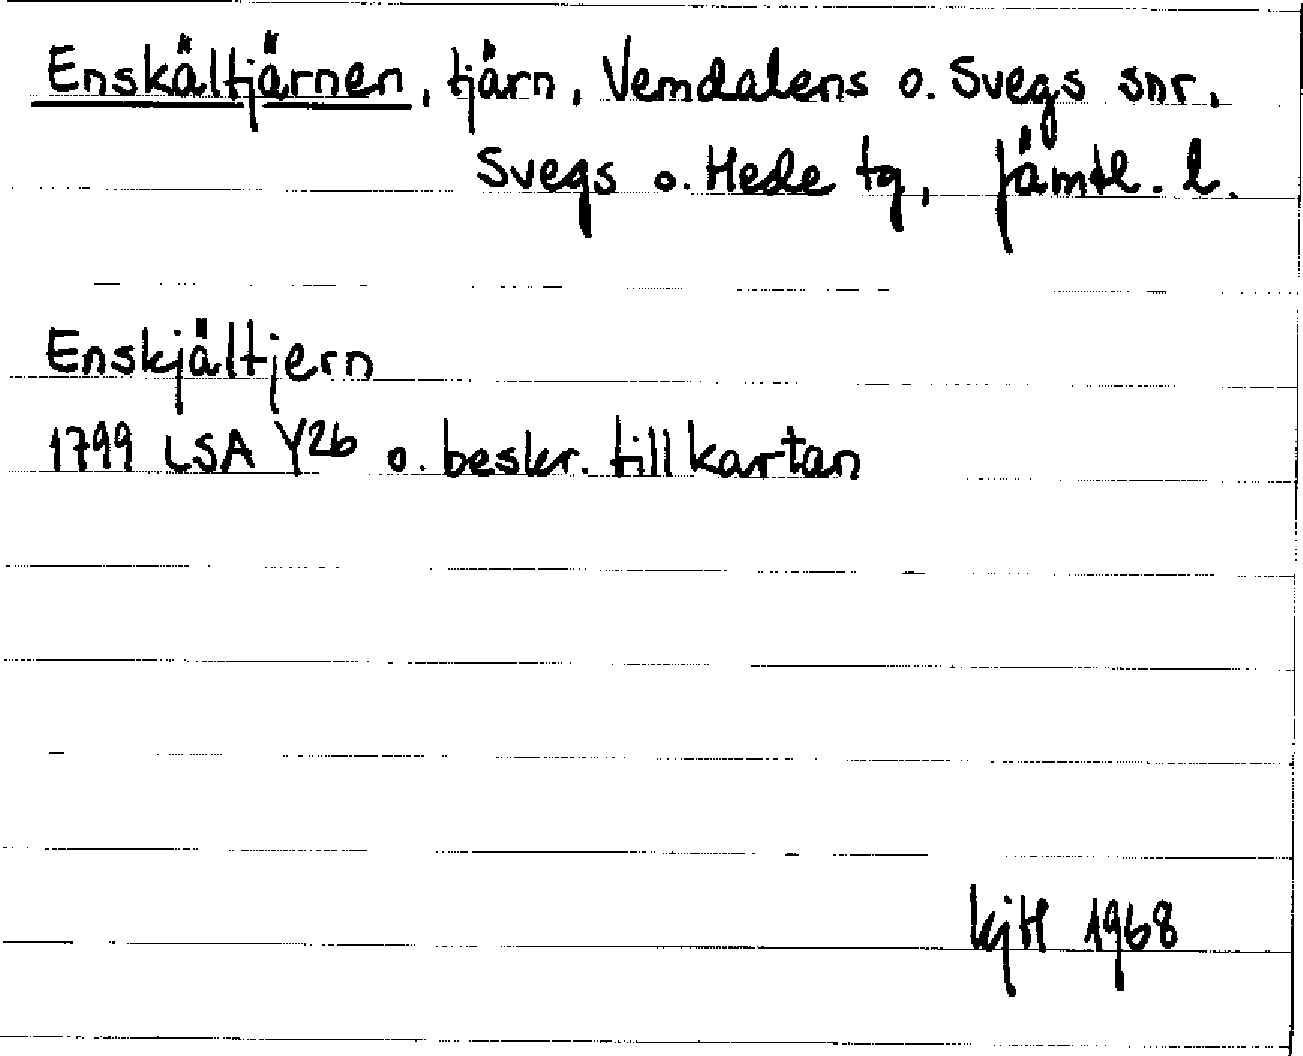 Enskältjärnen, tjärn, Vemdalens o. Svegs snr,
Svegs o. Hede tg, Jämtl. l.
Enskjältjern
1799 LSA Y26 o. beskr. till kartan
kjH 1968